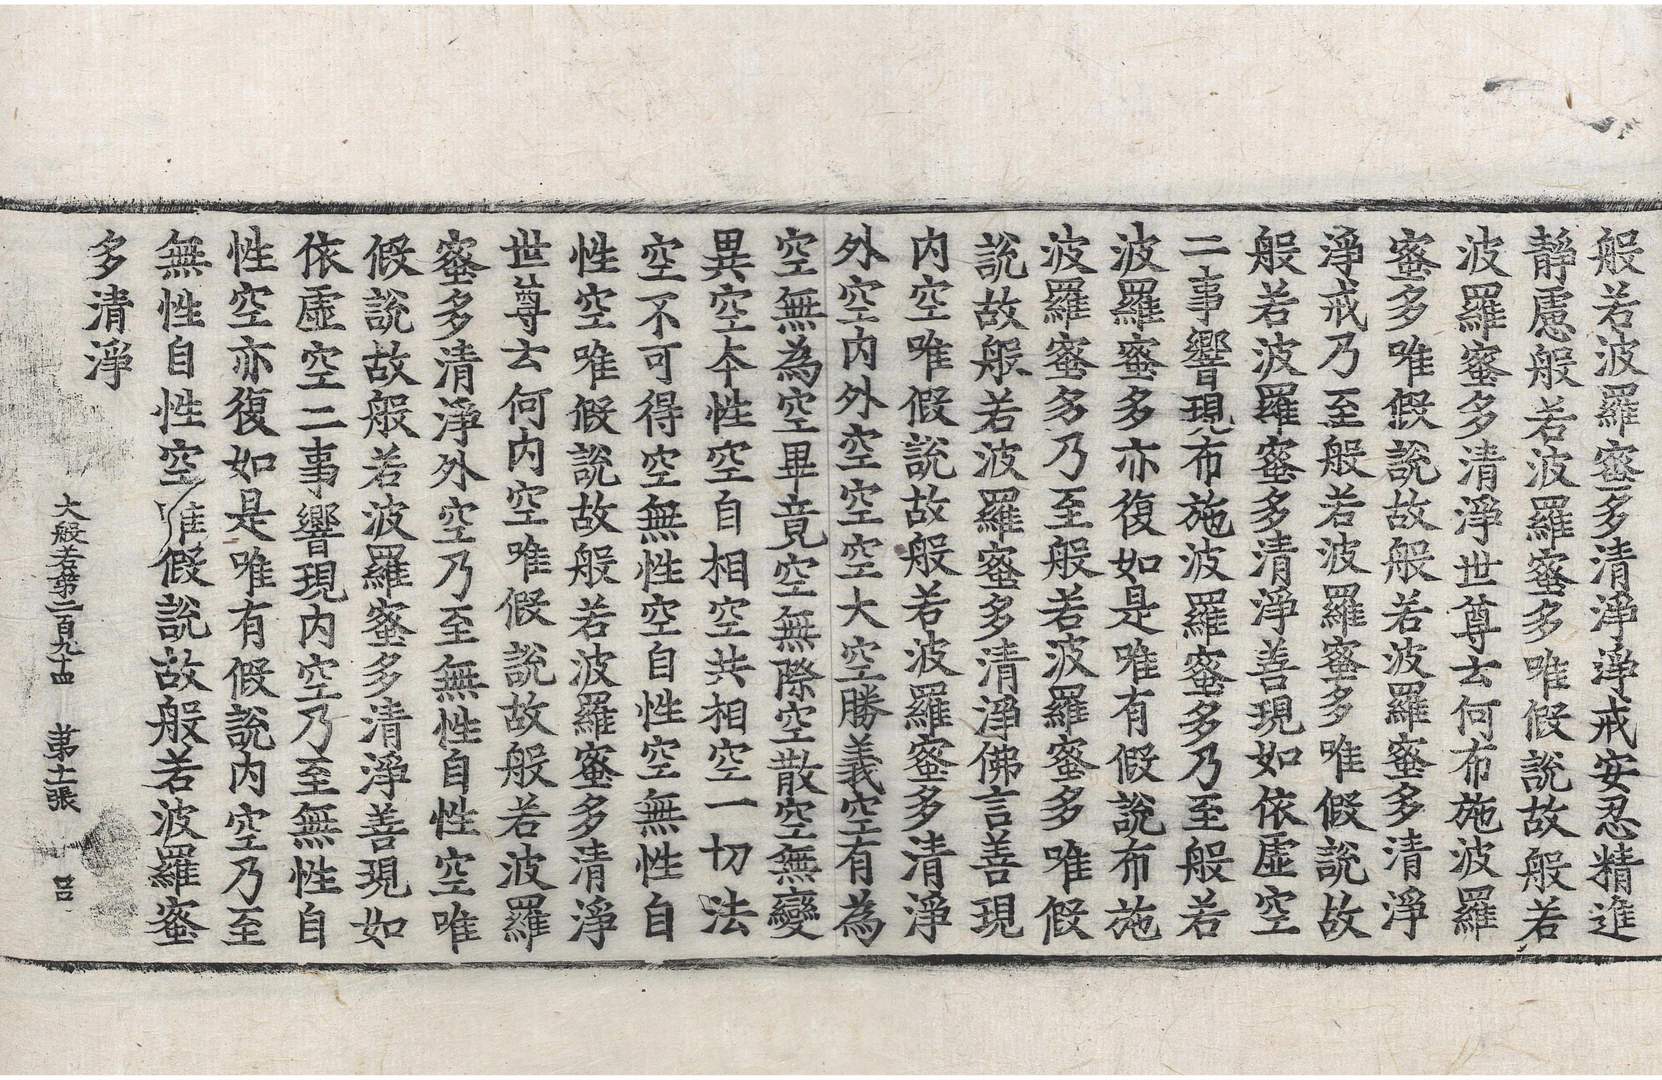 般若波羅蜜多清淨淨戒安忍精進
靜慮般若波羅蜜多唯假說故般若
波羅蜜多清淨世尊云何布施波羅
蜜多唯假說故般若波羅蜜多清淨
淨戒乃至般若波羅蜜多唯假說故
般若波羅蜜多清淨善現如依虛空
二事響現布施波羅蜜多乃至般若
波羅蜜多亦復如是唯有假說布施
波羅蜜多乃至般若波羅蜜多唯假
說故般若波羅蜜多清淨佛言善現
內空唯假說故般若波羅蜜多清淨
外空內外空空空大空勝義空有為
空無為空畢竟空無際空散空無變
異空本性空自相空共相空一切法
空不可得空無性空自性空無性自
性空唯假說故般若波羅蜜多清淨
世尊云何內空唯假說故般若波羅
蜜多清淨外空乃至無性自性空唯
假說故般若波羅蜜多清淨善現如
依虛空二事響現內空乃至無性自
性空亦復如是唯有假說內空乃至
無性自性空唯假說故般若波羅蜜
多清淨
大般若第二百九十四 第十一張 呂